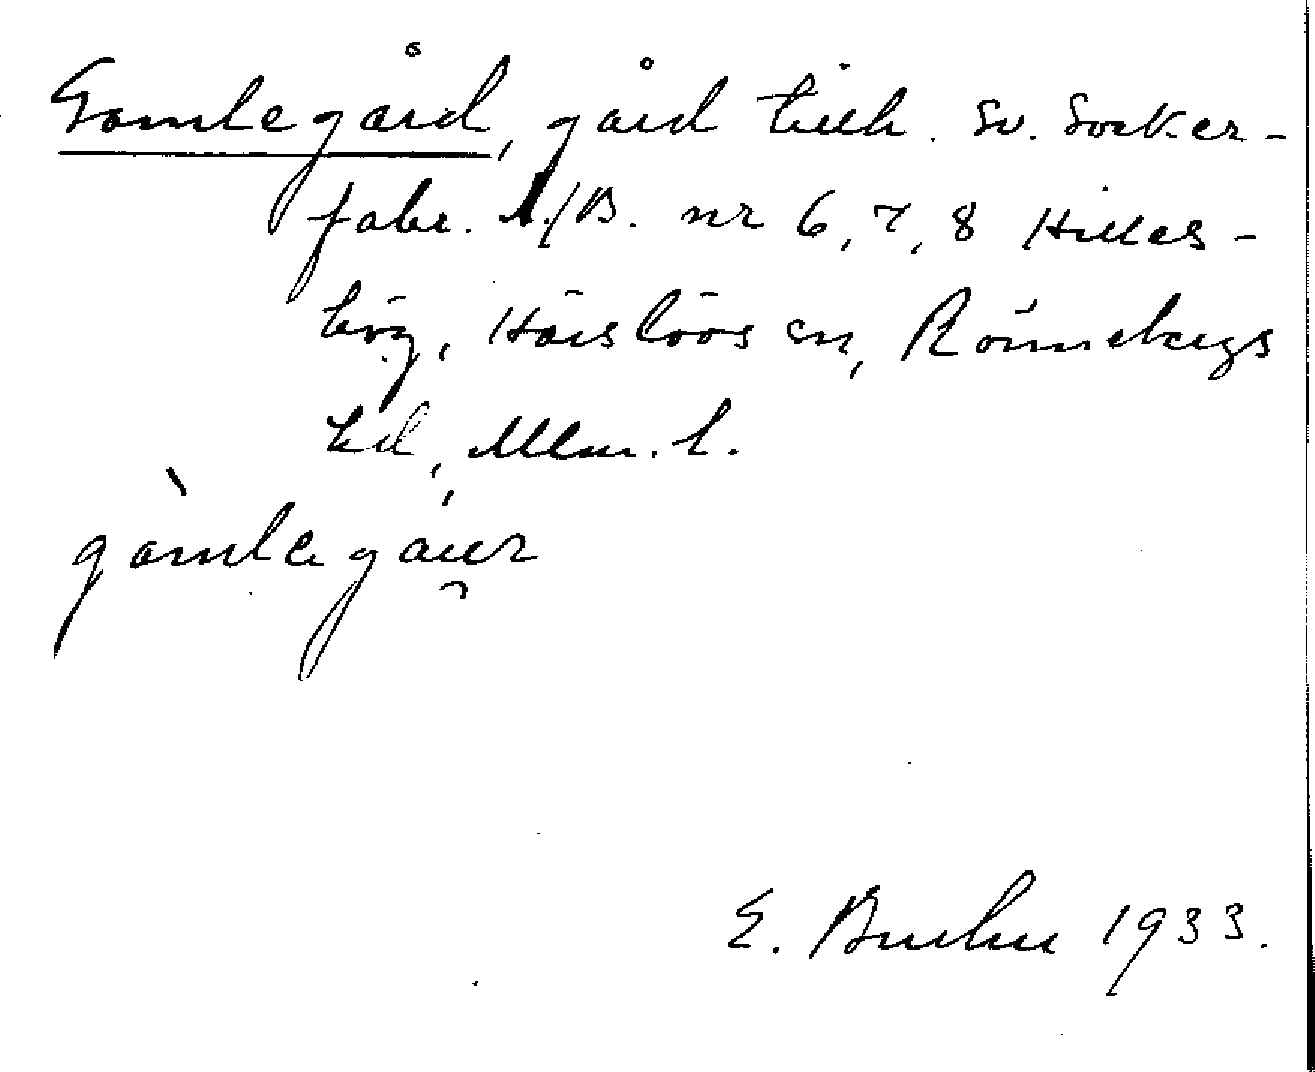 Gamlegård, gård tillh. Sv. Socker-
fabr. A./B. nr 6, 7, 8 Hilles-
hög, Härslövs sn, Rönnebergs
hd, Mlm. l.
E. 1933.